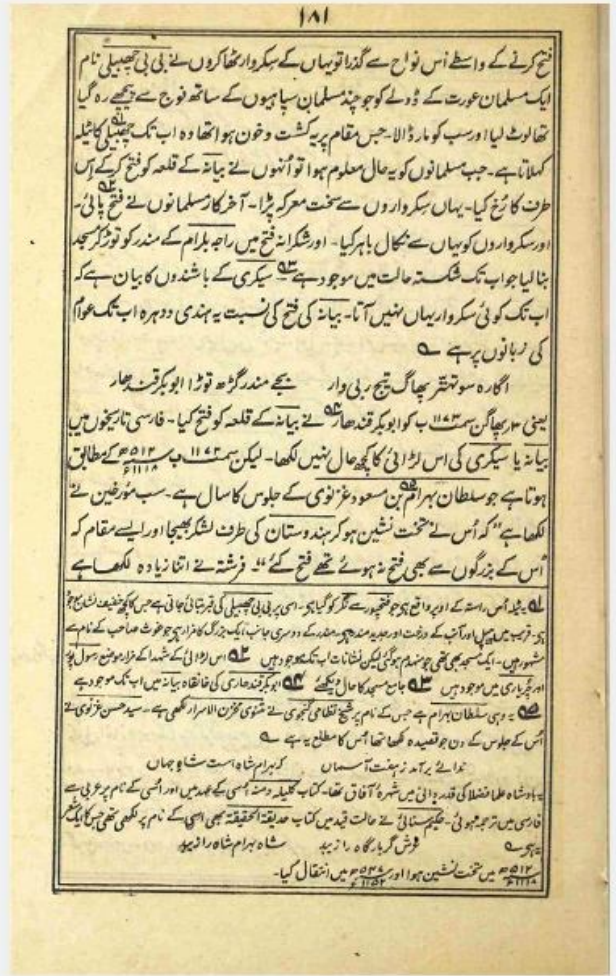 ۱۸۱
فتح کرنے کے واسطے اُس نواح سے گذرا تو یہاں کے سکروار ٹھاکروں نے بی بی چھبیلی نام
ایک مسلمان عورت کے ڈولے کو جو چند مسلمان سپاہیوں کے ساتھ فوج سے پیچھے رہ گیا
تھا لوٹ لیا اور سب کو مار ڈالا۔ جس مقام پر یہ کشت و خون ہوا تھا وہ اب تک چھبیلی کا ٹیلہ
کہلاتا ہے۔ جب مسلمانوں کو یہ حال معلوم ہوا تو اُنہوں نے بیانہ کے قلعہ کو فتح کر کے اِس
طرف کا رُخ کیا۔ یہاں سکرواروں سے سخت معرکہ پڑا۔ آخر کار مسلمانوں نے فتح پائی۔
اور سکرواروں کو یہاں سے نکال باہر کیا۔ اور شکرانہ فتح میں راجہ بلرام کے مندر کو توڑ کر مسجد
بنا لیا جو اب تک شکستہ حالت میں موجود ہے۔ سیکری کے باشندوں کا بیان ہے کہ
اب تک کوئی سکروار یہاں نہیں آتا۔ بیانہ کی فتح کی نسبت یہ ہندی دوہرہ اب تک عوام
کی زبانوں پر ہے
اگارہ سو تہتر پھاگ تیج ربی وار بجے مندر گڑھ توڑا ابوبکر قندھار
یعنی ۳ پھاگن سمت ۱۱۷۳ ب کو ابوبکر قندھار نے بیانہ کے قلعہ کو فتح کیا۔ فارسی تاریخوں میں
بیانہ یا سیکری کی اس لڑائی کا کچھ حال نہیں لکھا۔ لیکن سمت ۱۱۷۳ ب سنہ ۵۱۲ھ ۱۱۱۸ء کے مطابق
ہوتا ہے جو سلطان بہرام بن مسعود غزنوی کے جلوس کا سال ہے۔ سب مؤرخین نے
لکھا ہے "کہ اُس نے تخت نشین ہو کر ہندوستان کی طرف لشکر بھیجا اور ایسے مقام کہ
اُس کے بزرگوں سے بھی فتح نہ ہوئے تھے فتح کئے"۔ فرشتہ نے اتنا زیادہ لکھا ہے
۵۱ یہ ٹیلہ اُس راستہ کے اوپر واقع ہے جو فتحپور سے نگر کو گیا ہے۔ اسی پر بی بی چھبیلی کی قبر بتائی جاتی ہے جس کا کچھ خفیف نشان موجود
ہے۔ قریب میں پیپل اور آنب کے درخت اور جدید مندر ہے، مندر کے دوسری جانب ایک بزرگ کا مزار ہے جو غوث صاحب کے نام سے
مشہور ہیں۔ ایک مسجد بھی تھی جو منہدم ہو گئی لیکن نشانات اب تک موجود ہیں ۵۲ اس لڑائی کے شہدا کے مزار موضع رسول پور
اور چُریاری میں موجود ہیں ۵۳ جامع مسجد کا حال دیکھئے ۵۴ ابوبکر قندھاری کی خانقاہ بیانہ میں اب تک موجود ہے
۵۵ یہ وہی سلطان بہرام ہے جس کے نام پر شیخ نظامی گنجوی نے مثنوی مخزن الاسرار لکھی ہے۔ سید حسن غزنوی نے
اُس کے جلوس کے دن جو قصیدہ لکھا تھا اُس کا مطلع یہ ہے
ندائے برآمد ز ہفت آسماں کہ بہرام شاہ است شاہ جہاں
یہ بادشاہ علما فضلا کی قدردانی میں شہرۂ آفاق تھا۔ کتاب کلیلہ دمنہ اُسی کے عہد میں اور اُسی کے نام پر عربی سے
فارسی میں ترجمہ ہوئی۔ حکیم سنائی نے حالت قید میں کتاب حدیقۃ الحقیقۃ بھی اسی کے نام پر لکھی تھی جس کا ایک شعر
یہ ہے گر بارگاہ را زیبد شاہ بہرام شاہ را زیبد
۵۱۲ھ ۱۱۱۸ء میں تخت نشین ہوا اور ۵۴۷ھ ۱۱۵۲ء میں انتقال کیا۔